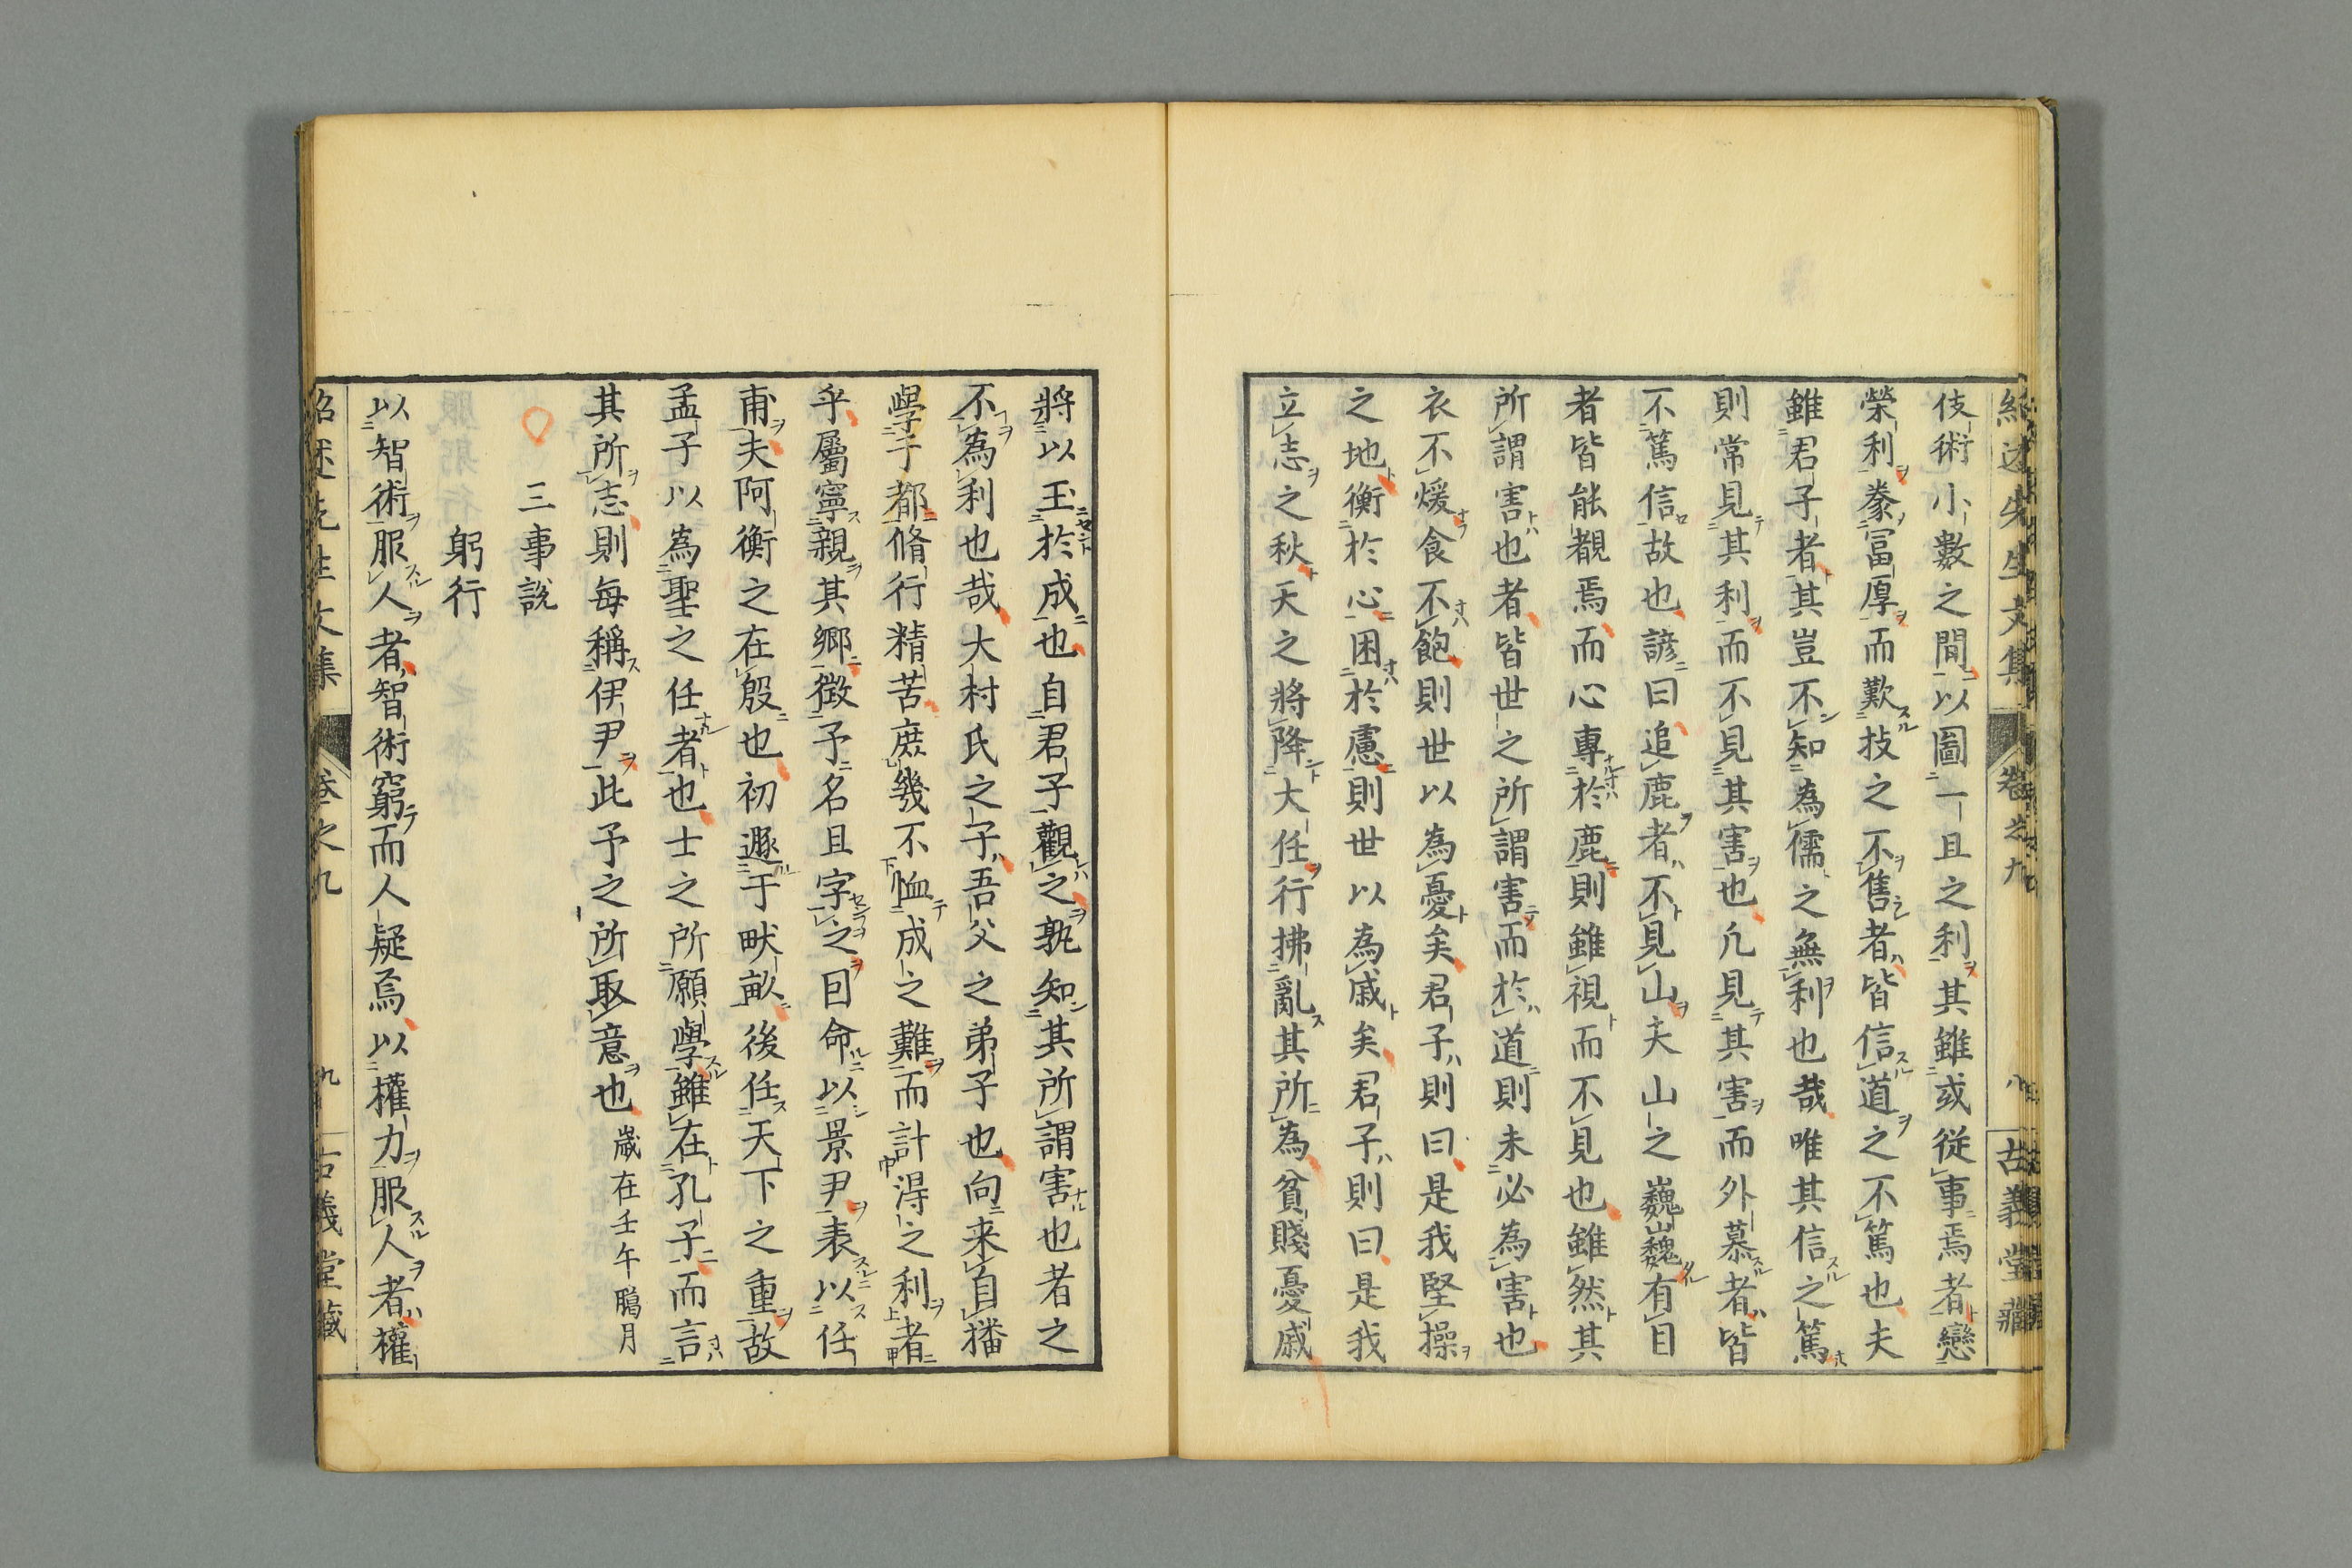 伎術小數之間以圖一且之利其雖或從事焉者戀
榮利豢冨厚而歎技之不售者皆信道之不篤也夫
雖君子者其豈不知為儒之無利也哉唯其信之篤
則常見其利而不見其害也凢見其害而外慕者皆
不篤信故也諺曰追鹿者不見山夫山之巍巍有目
者皆能覩焉而心專於鹿則雖視而不見也雖然其
所謂害也者皆世之所謂害而於道則未必為害也
衣不煖食不飽則世以為憂矣君子則曰是我堅操
之地衡於心困於慮則世以為戚矣君子則曰是我
立志之秋天之將降大任行拂亂其所為貧賤憂戚
將以玉於成也自君子觀之孰知其所謂害也者之
不為利也哉大村氏之子吾父之弟子也向来自播
學于都脩行精苦庶幾不恤成之難而計淂之利者
乎屬寧親其鄉徵予名且字之曰命以景尹表以任
甫夫阿衡之在殷也初遯于畎畝後任天下之重故
孟子以為聖之任者也士之所願學雖在孔子而言
其所志則每稱伊尹此予之所取意也 歲在壬午鶡月
三事說
躬行
以智術服人者智術窮而人疑焉以權力服人者權
紹述先生文集 卷之九 九 古義堂藏